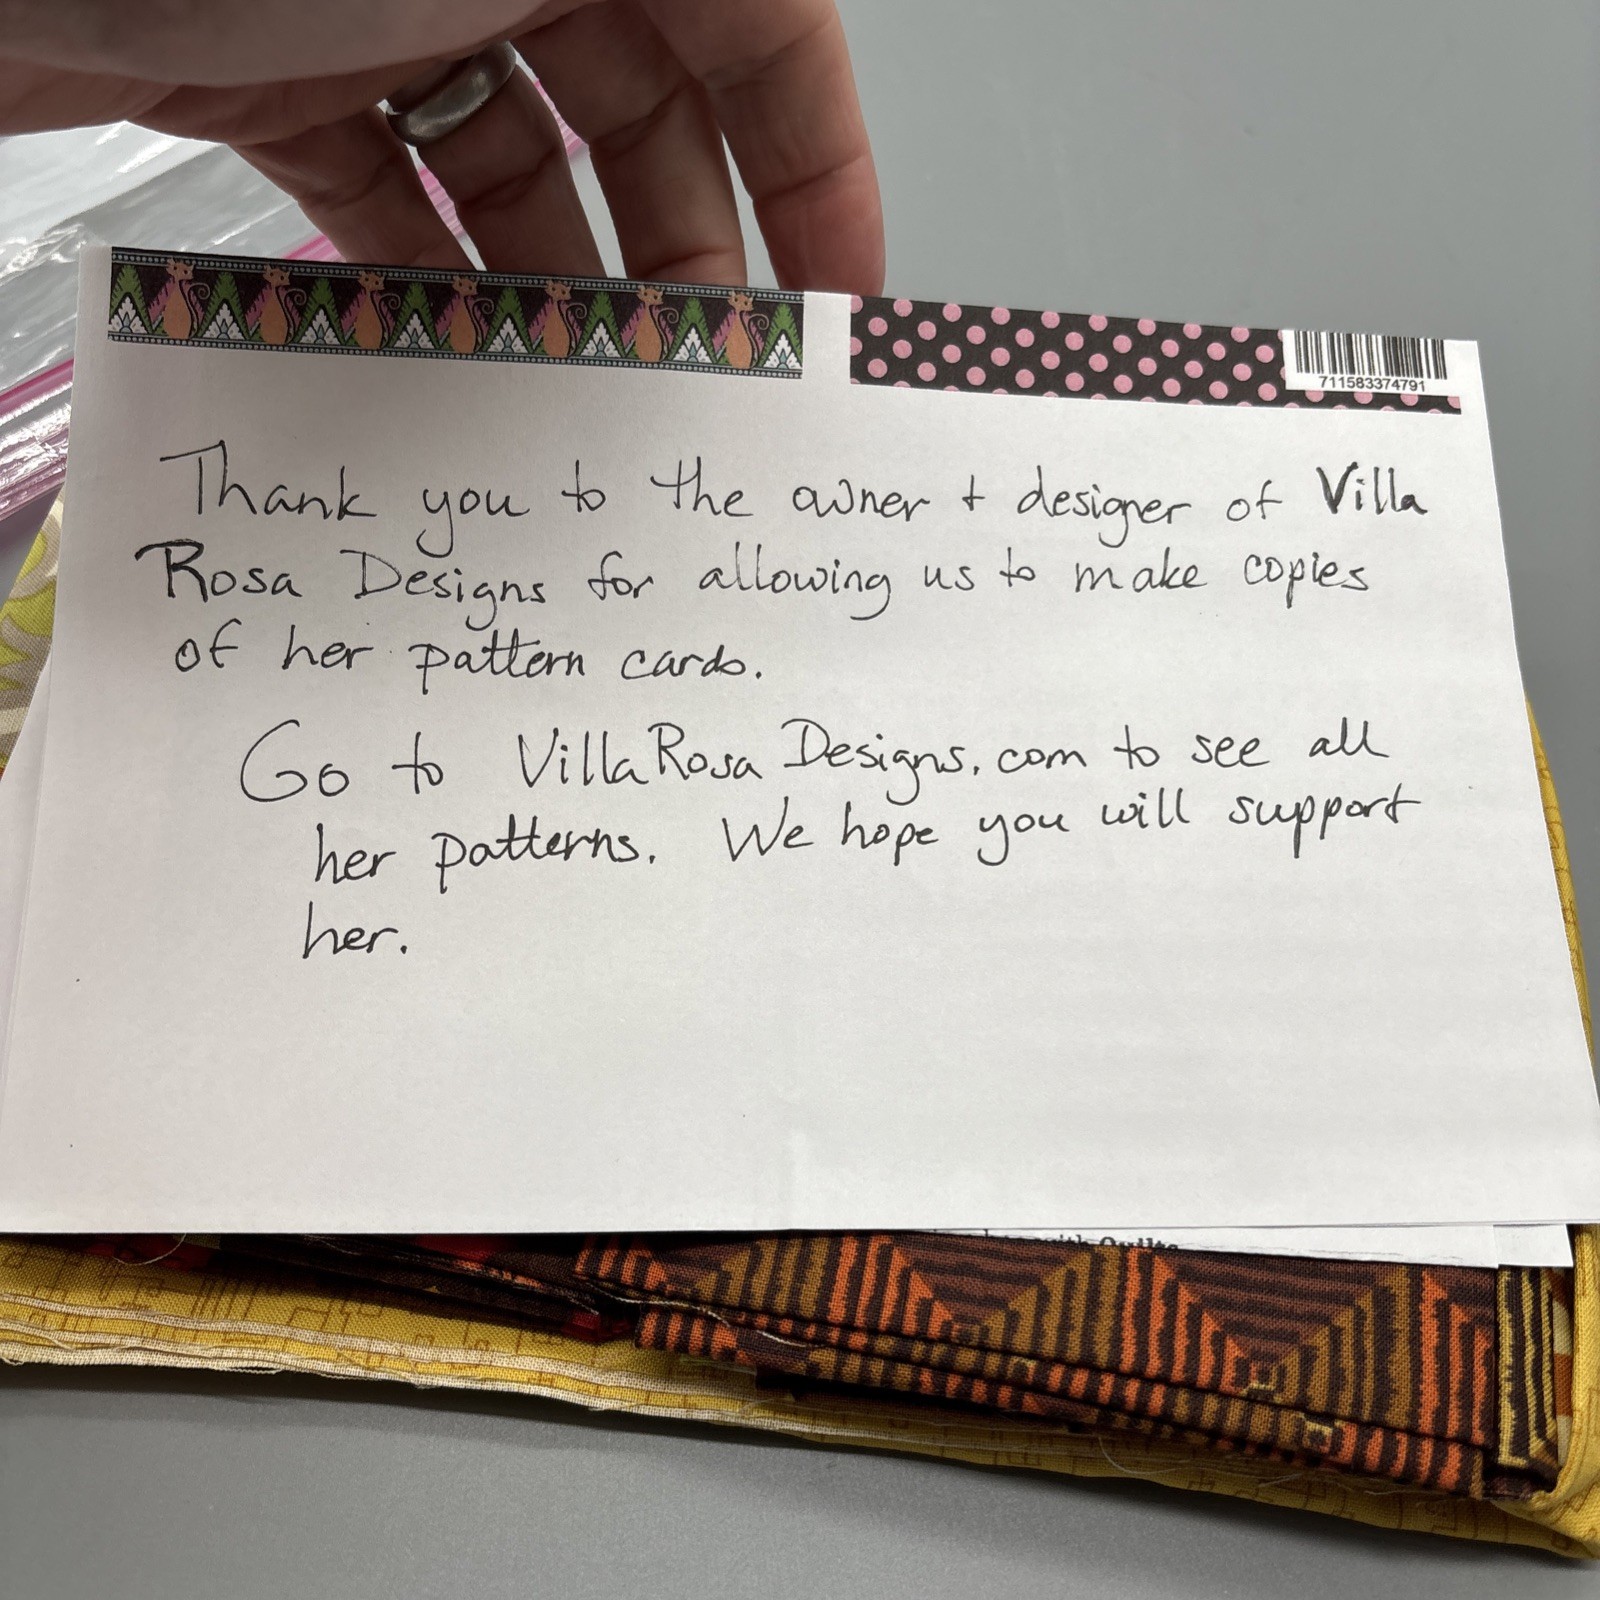 711583374791
Thank you to the owner + designer of Villa
Rosa Designs for allowing us to make copies
of her pattern cards.
Go to VillaRosaDesigns.com to see all
her patterns. We hope you will support
her.
with Quilts